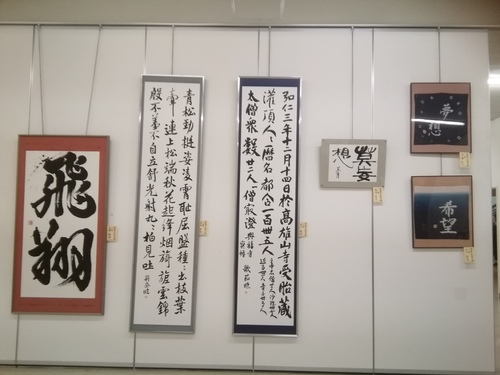 飛翔
青松勁挺姿凌霄恥屈盤種々出枝葉
牽連上松端秋花起絳烟旖旎雲錦
殷不羞不自立舒光射丸々柏見吐
弘仁三年十二月十四日於高雄山寺受胎蔵
灌頂人々暦名都合一百卅五人
太僧衆数廿二人 僧最澄 興福寺
想
夢想
希望